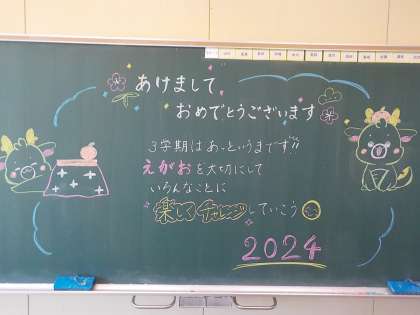 あけまして
おめでとうございます
3学期はあっというまです!!
えがおを大切にして
いろんなことに
楽しくチャレンジしていこう
2024